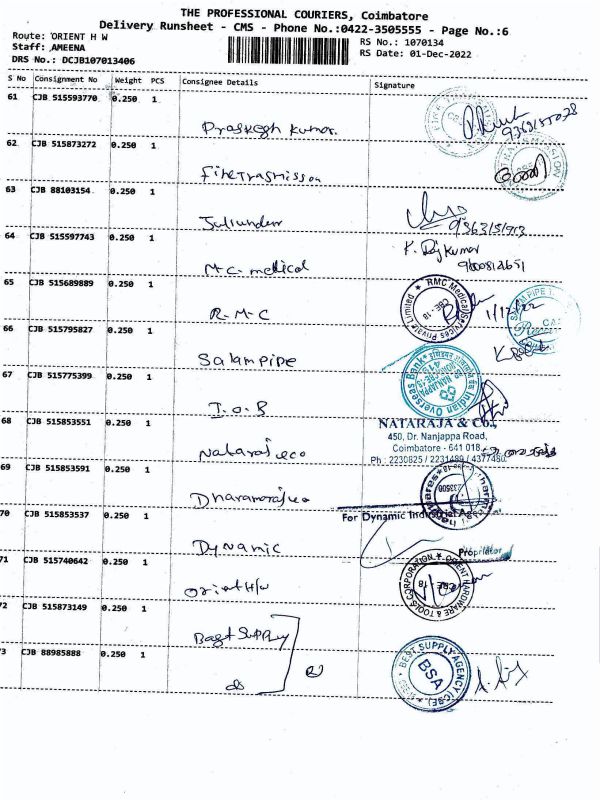 THE PROFESSIONAL COURIERS, Coimbatore
Delivery Runsheet - CMS - Phone No.:0422-3505555 - Page No.:6
Route: ORIENT H W
RS No.: 1070134
Staff: AMEENA
RS Date: 01-Dec-2022
DRS No.: DCJB107013406
S No Consignment No Weight PCS Consignee Details Signature
61 CJB 515593770 0.250 1
Prakash Kumar.
62 CJB 515873272 0.250 1
63 CJB 88103154 0.250 1
64 CJB 515597743 0.250 1
K. Rajkumar
M-C-medical
65 CJB 515689889 0.250 1
RMC Medical Services Private Limited
CBE-18
1/12/22
R-M-C
66 CJB 515795827 0.250 1
Salampipe
67 CJB 515775399 0.250 1
Indian Overseas Bank
I.O.B
68 CJB 515853551 0.250 1
NATARAJA & Co.,
450, Dr. Nanjappa Road,
Coimbatore - 641 018.
Ph : 2230825 / 2231489 / 4377480
Nataraj &co
69 CJB 515853591 0.250 1
70 CJB 515853537 0.250 1
For Dynamic Industrial Agencies
Proprietor
Dynamic
71 CJB 515740642 0.250 1
ORIENT HARDWARE & TOOLS CORPORATION
CBE - 18
Orient H/w
72 CJB 515873149 0.250 1
Best Supply
73 CJB 88985888 0.250 1
BEST SUPPLY AGENCY (CBE)
BSA
do